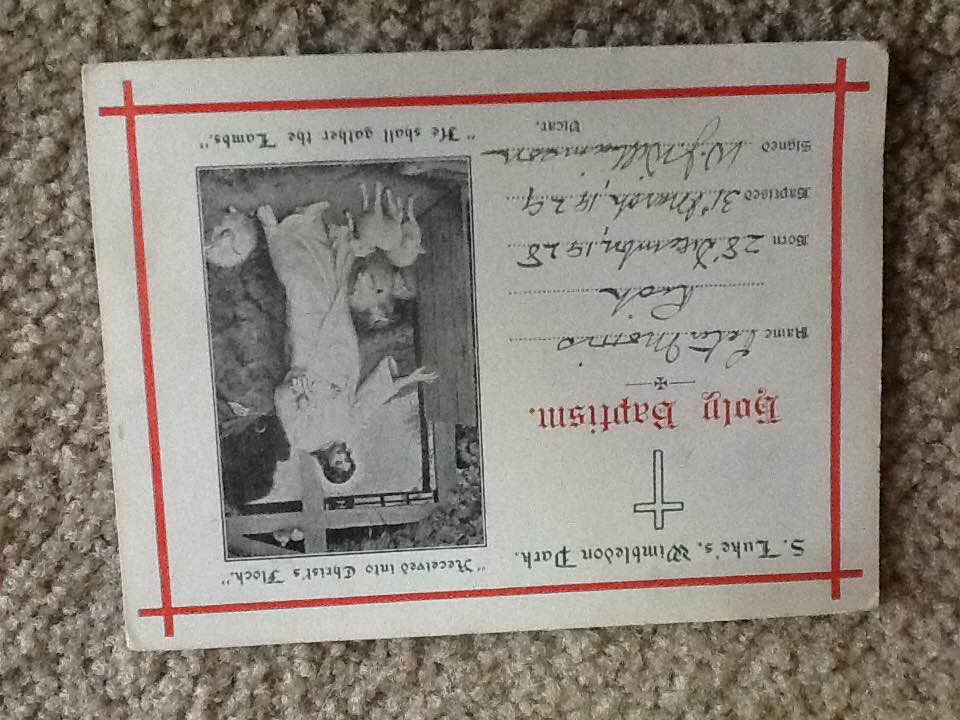 S. Luke's, Wimbledon Park.
Holy Baptism.
Name Peter Morris
Born 28 December, 1928
Baptised 31st March, 1929
Signed W.J. Williamson
Vicar.
"Received into Christ's Flock."
"He shall gather the Lambs."